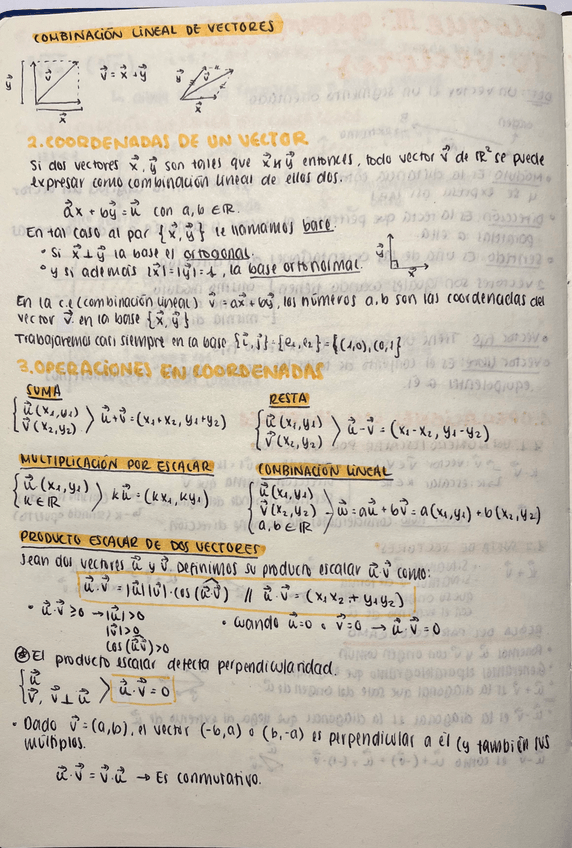 COMBINACIÓN LINEAL DE VECTORES
y⃗ v⃗ x⃗ v⃗ = x⃗ + y⃗ y⃗ v⃗ x⃗
2. COORDENADAS DE UN VECTOR
Si dos vectores x⃗, y⃗ son tales que x⃗ ∦ y⃗ entonces, todo vector v⃗ de ℝ² se puede
expresar como combinación lineal de ellos dos.
a⃗x + by⃗ = u⃗ con a, b ∈ ℝ.
En tal caso al par {x⃗, y⃗} le llamamos base.
• Si x⃗ ⊥ y⃗ la base es ortogonal.
• y si además |x⃗| = |y⃗| = 1, la base ortonormal.
y⃗ x⃗
En la c.l (combinación lineal) v⃗ = ax⃗ + by⃗, los números a, b son las coordenadas del
vector v⃗ en la base {x⃗, y⃗}
Trabajaremos casi siempre en la base {i⃗, j⃗} = {e₁, e₂} = {(1,0), (0,1}
3. OPERACIONES EN COORDENADAS
SUMA RESTA
{ u⃗ (x₁, y₁) v⃗ (x₂, y₂) 〉 u⃗ + v⃗ = (x₁ + x₂, y₁ + y₂) { u⃗ (x₁, y₁) v⃗ (x₂, y₂) 〉 u⃗ - v⃗ = (x₁ - x₂, y₁ - y₂)
MULTIPLICACIÓN POR ESCALAR COMBINACIÓN LINEAL
{ u⃗ (x₁, y₁) k ∈ ℝ 〉 ku⃗ = (kx₁, ky₁) { u⃗ (x₁, y₁) v⃗ (x₂, y₂) a, b ∈ ℝ - w⃗ = au⃗ + bv⃗ = a(x₁, y₁) + b(x₂, y₂)
PRODUCTO ESCALAR DE DOS VECTORES
Sean dos vectores u⃗ y v⃗. Definimos su producto escalar u⃗·v⃗ como:
u⃗·v⃗ = |u⃗||v⃗|·cos(u⃗·v⃗) // u⃗·v⃗ = (x₁x₂ + y₁y₂)
• u⃗·v⃗ ≥ 0 → |u⃗| > 0 • cuando u⃗ = 0 o v⃗ = 0 → u⃗·v⃗ = 0
|v⃗| > 0
cos(u⃗v⃗) > 0
⊛ El producto escalar detecta perpendicularidad.
{ u⃗ v⃗, v⃗ ⊥ u⃗ 〉 u⃗·v⃗ = 0
• Dado v⃗ = (a,b), el vector (-b,a) o (b,-a) es perpendicular a él (y también sus
múltiplos.
u⃗·v⃗ = v⃗·u⃗ → Es conmutativo.